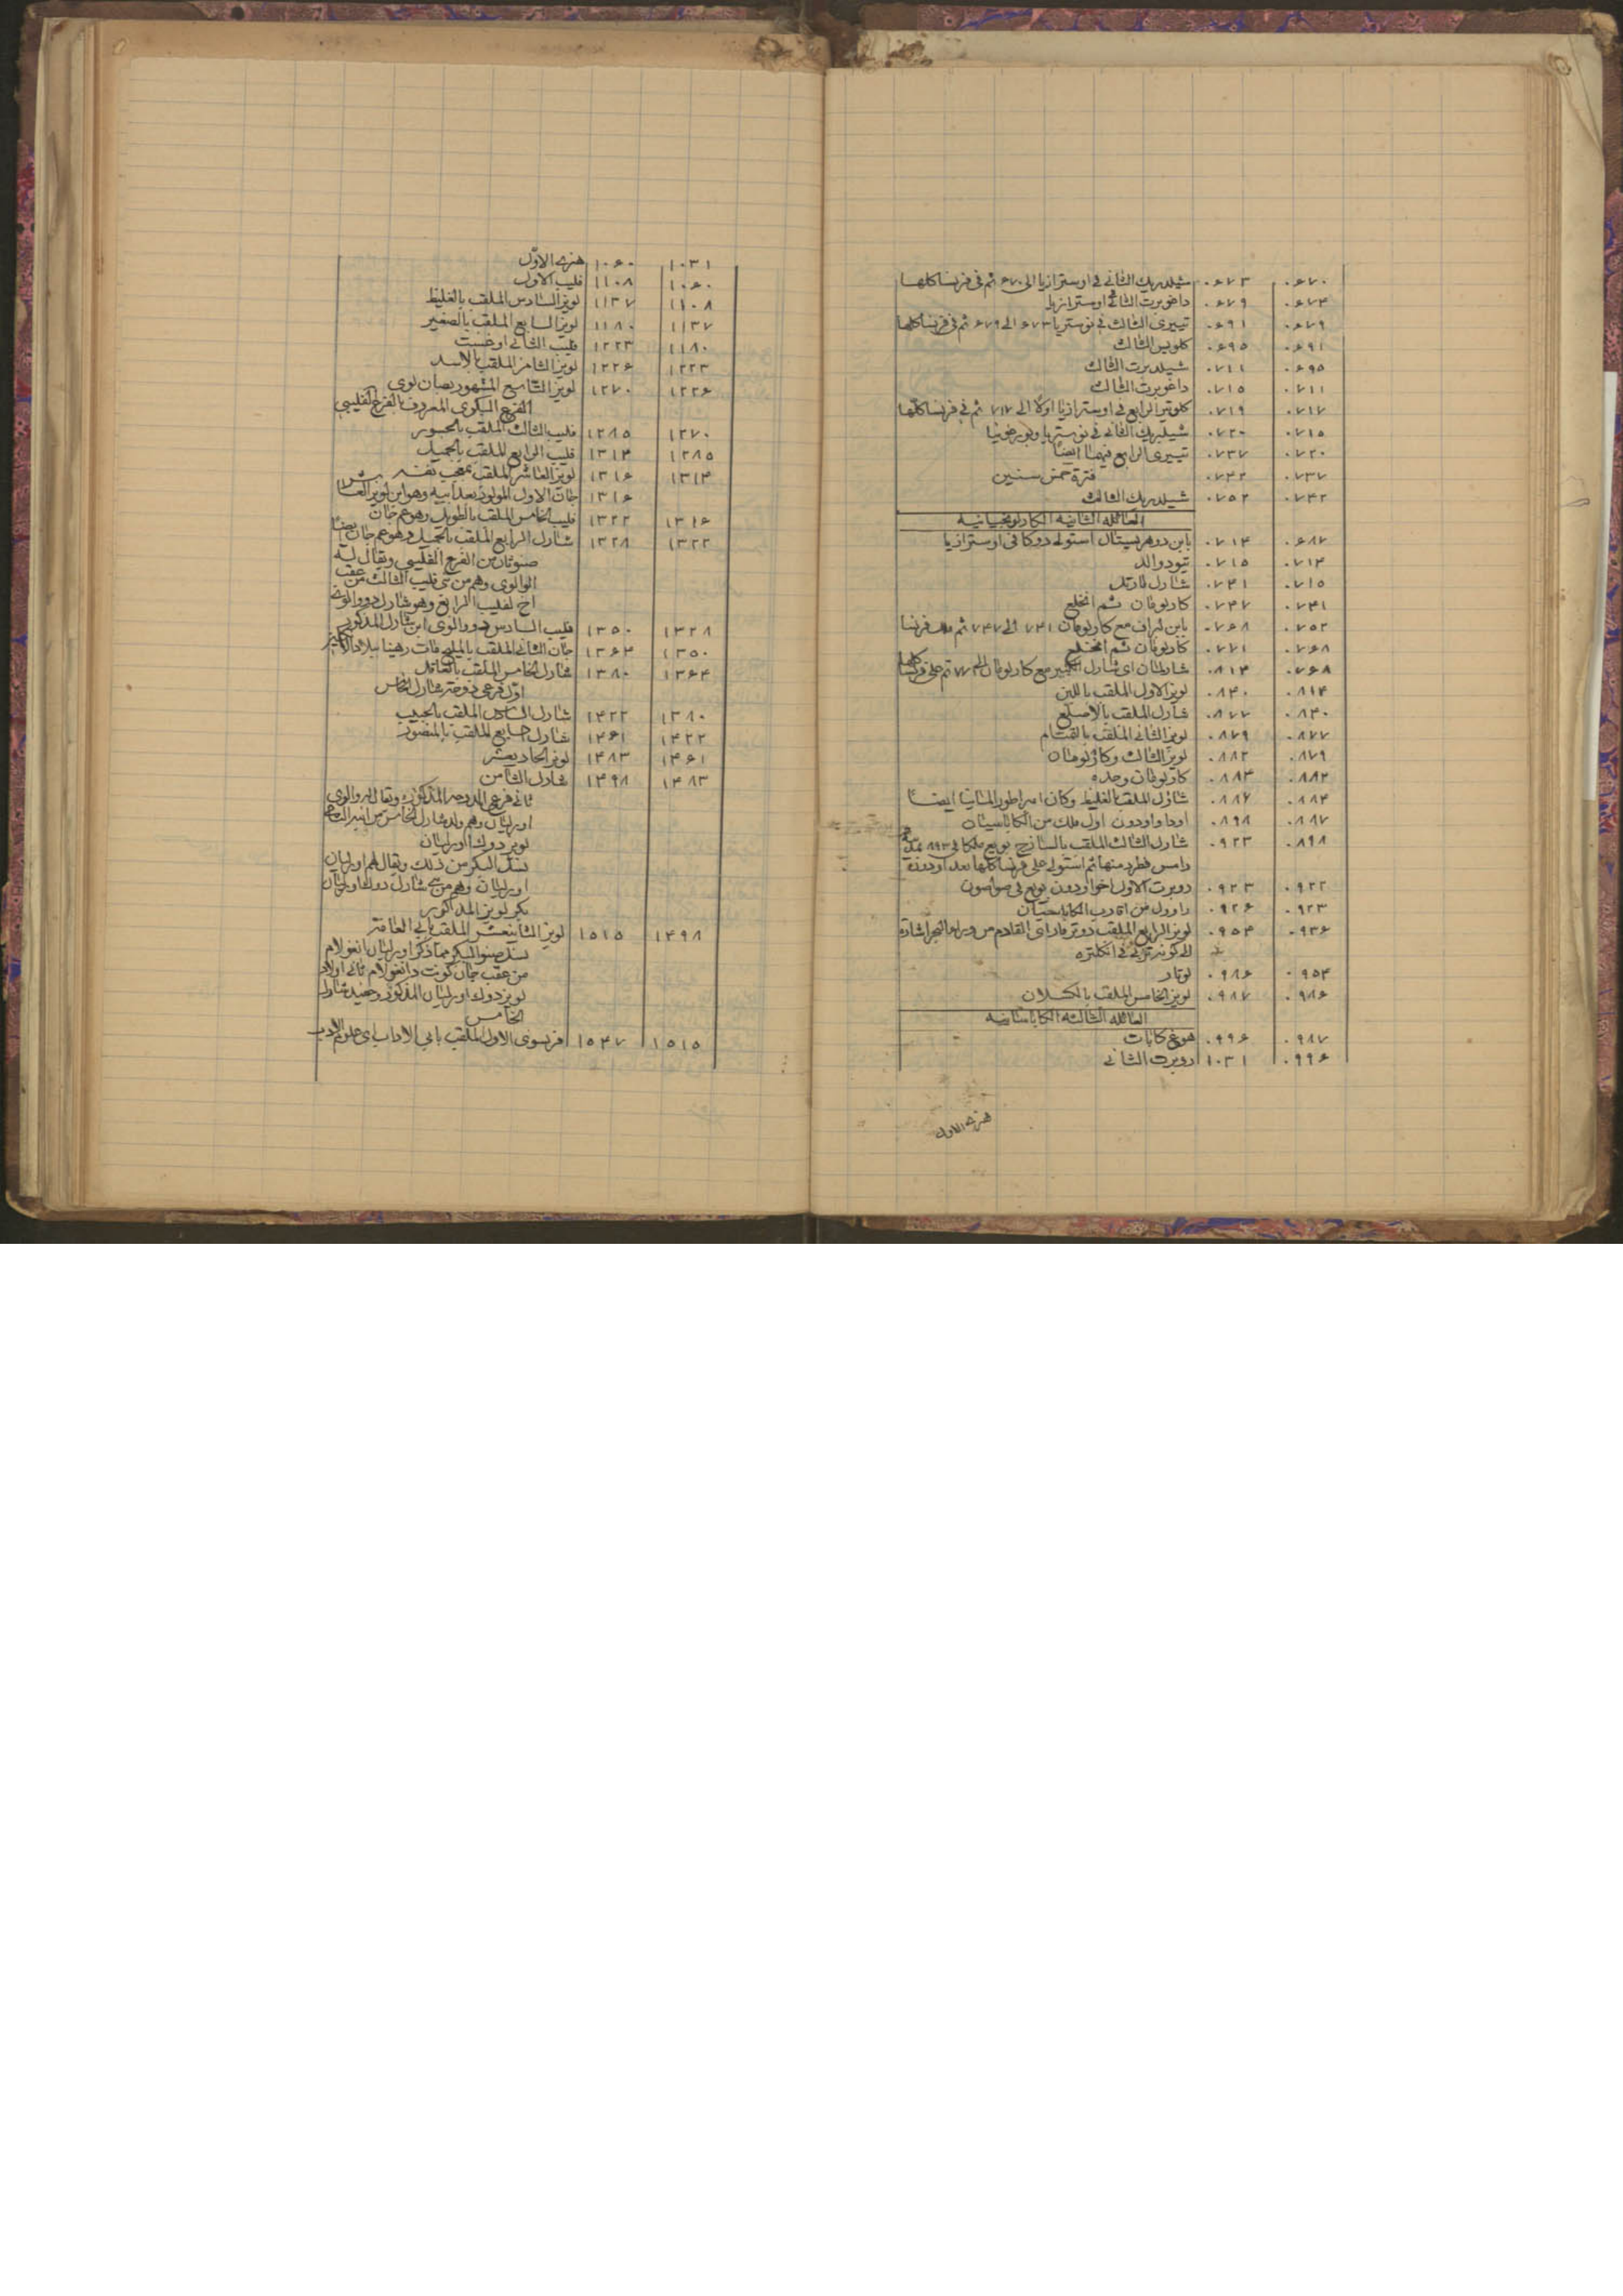 ٠٦٧٠ ٠٦٧٣ شيلدريك الثاني في اوسترازيا الى ٦٧٠ ثم في فرنسا كلها
٠٦٧٤ ٠٦٧٩ داغوبرت الثاني في اوسترازيا
٠٦٧٩ ٠٦٩١ تييرى الثالث في نوستريا ٦٧٣ الى ٦٧٩ ثم في فرنسا كلها
٠٦٩١ ٠٦٩٥ كلويس الثالث
٠٦٩٥ ٠٧١١ شيلدبرت الثالث
٠٧١١ ٠٧١٥ داغوبرت الثالث
٠٧١٧ ٠٧١٩ كلوتير الرابع في اوسترازيا اولا الى ٧١٧ ثم في فرنسا كلها
٠٧١٥ ٠٧٢٠ شيلبريك الثاني في نوستريا وبورغونيا
٠٧٢٠ ٠٧٣٧ تييرى الرابع فيهما ايضا
٠٧٣٧ ٠٧٤٢ فترة خمس سنين
٠٧٤٢ ٠٧٥٢ شيلدريك الثالث
العائله الثانيه الكارلونجيانيه
٠٦٨٧ ٠٧١٤ بابن دو هريستال استولى دوكا في اوسترازيا
٠٧١٤ ٠٧١٥ تيودوالد
٠٧١٥ ٠٧٤١ شارل مارتل
٠٧٤١ ٠٧٤٧ كارلومان ثم انخلع
٠٧٥٢ ٠٧٦٨ بابن لبراف مع كارلومان ٧٤١ الى ٧٤٧ ثم ملك فرنسا
٠٧٦٨ ٠٧٧١ كارلومان ثم انخلع
٠٧٦٨ ٠٨١٤ شارلمان اى شارل الكبير مع كارلومان الى ٧٧ ثم على فرنسا كلها
٠٨١٤ ٠٨٤٠ لويز الاول الملقب باللين
٠٨٤٠ ٠٨٧٧ شارل الملقب بالاصلع
٠٨٧٧ ٠٨٧٩ لويز الثاني الملقب بالتمتام
٠٨٧٩ ٠٨٨٢ لويز الثالث وكارلومان
٠٨٨٢ ٠٨٨٤ كارلومان وحده
٠٨٨٤ ٠٨٨٧ شارل الملقب بالغليظ وكان امبراطور المانيا ايضا
٠٨٨٧ ٠٨٩٨ اودا واودون اول ملك من الكاباسيان
٠٨٩٨ ٠٩٢٣ شارل الثالث الملقب بالساذج بويع ملكا في ٨٩٣
رامس فطرد منها ثم استولى على فرنسا كلها بعد اودون
٠٩٢٢ ٠٩٢٣ روبرت الاول اخو اودون بويع في صواصون
٠٩٢٣ ٠٩٣٦ راوول من اقارب الكاباسيان
٠٩٣٦ ٠٩٥٤ لويز الرابع الملقب دوترمار اى القادم من وراء البحر اشارة
الى كونه تربى في انكلتره
٠٩٥٤ ٠٩٨٦ لوتار
٠٩٨٦ ٠٩٨٧ لويز الخامس الملقب بالكسلان
العائله الثالثه الكاباسانيه
٠٩٨٧ ٠٩٩٦ هوغ كابات
٠٩٩٦ ١٠٣١ روبرت الثاني
هنرى الاول
١٠٣١ ١٠٦٠ هنرى الاول
١٠٦٠ ١١٠٨ فليب الاول
١١٠٨ ١١٣٧ لويز السادس الملقب بالغليظ
١١٣٧ ١١٨٠ لويز السابع الملقب بالصغير
١١٨٠ ١٢٢٣ فليب الثاني اوغست
١٢٢٣ ١٢٢٦ لويز الثامن الملقب بالاسد
١٢٢٦ ١٢٧٠ لويز التاسع المشهور بصان لوى
الفرع البكرى المعروف بالفرع الفليبي
١٢٧٠ ١٢٨٥ فليب الثالث الملقب بالجسور
١٢٨٥ ١٣١٤ فليب الرابع الملقب بالجميل
١٣١٤ ١٣١٦ لويز العاشر الملقب بمعجب نفسه
١٣١٦ جان الاول المولود بعد ابيه وهو ابن لويز العاشر
١٣١٦ ١٣٢٢ فليب الخامس الملقب بالطويل وهو عم جان
١٣٢٢ ١٣٢٨ شارل الرابع الملقب بالجميل وهو عم جان ايضا
صنوثان من الفرع الفليبي ويقال له
الوالوى وهم من بني فليب الثالث من عقب
اخ لفليب الرابع وهو شارل دو والوى
١٣٢٨ ١٣٥٠ فليب السادس دو والوى ابن شارل المذكور
١٣٥٠ ١٣٦٤ جان الثاني الملقب بالمليح مات رهينا ببلاد الانكليز
١٣٦٤ ١٣٨٠ شارل الخامس الملقب بالعاقل
اول فرعى دوحة شارل الخامس
١٣٨٠ ١٤٢٢ شارل السادس الملقب بالحبيب
١٤٢٢ ١٤٦١ شارل السابع الملقب بالمنصور
١٤٦١ ١٤٨٣ لويز الحاد يعشر
١٤٨٣ ١٤٩٨ شارل الثامن
ثاني فرعى الدوحه المذكوره ويقال له والوى
اورليان وهم ولد شارل الخامس من ابنه
لويز دوك اورليان
نسل البكر من ذلك ويقال لهم اورليان
اورليان وهم من بني شارل دوك اورليان
بكر لويز المذكور
١٤٩٨ ١٥١٥ لويز الثاني عشر الملقب بابي العامة
نسل صنو البكر مما ذكر اورليان انغولام
من عقب جان كونت دانغولام ثاني اولاد
لويز دوك اورليان المذكور وحفيد شارل
الخامس
١٥١٥ ١٥٤٧ فرنسوى الاول الملقب بابي الاداب اى علوم الادب